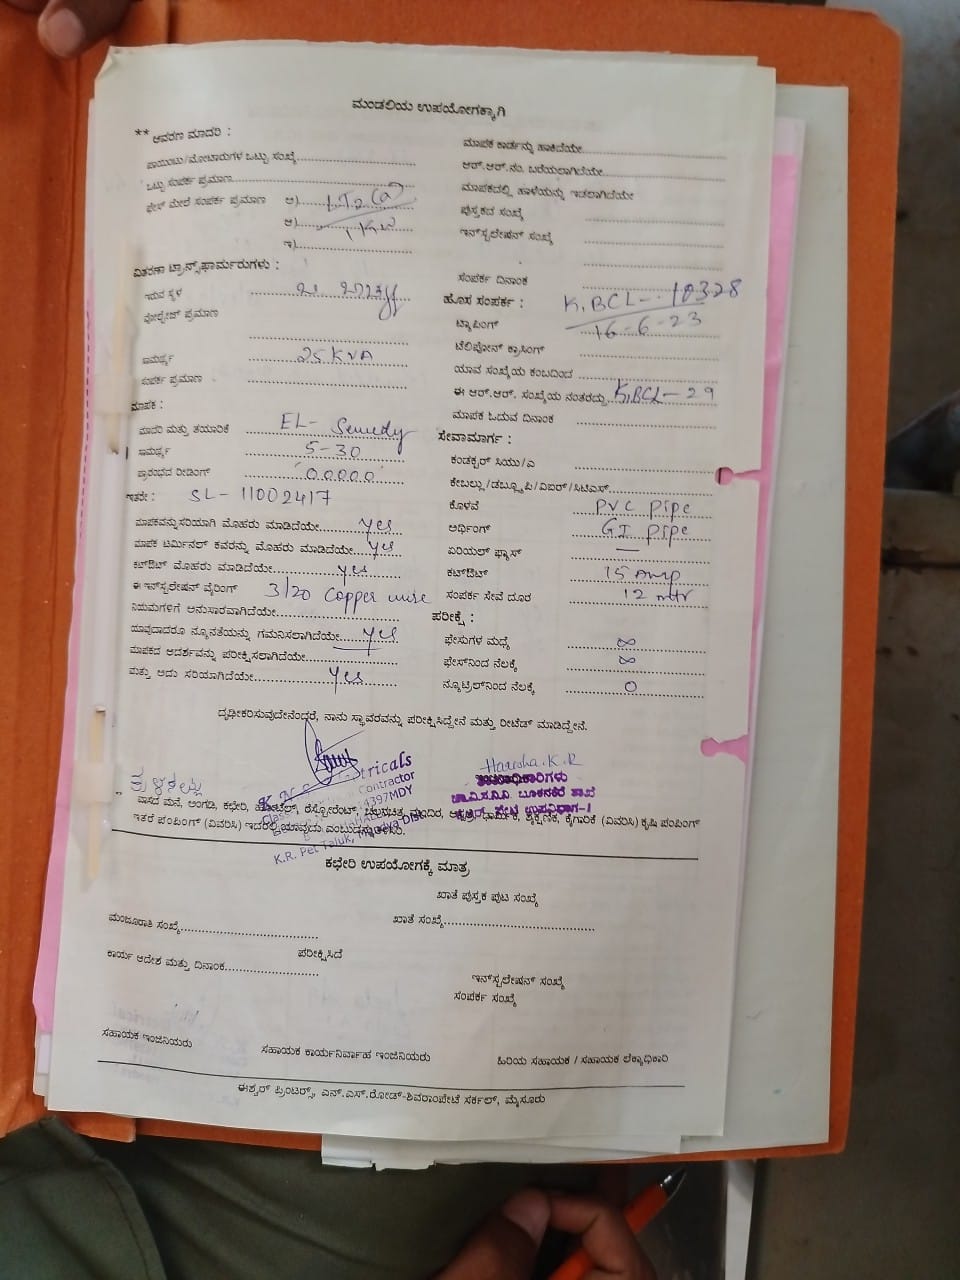 ಮಂಡಲಿಯ ಉಪಯೋಗಕ್ಕಾಗಿ
** ಆವರಣ ಮಾದರಿ :
ಪಾಯಿಂಟು/ಮೋಟಾರುಗಳ ಒಟ್ಟು ಸಂಖ್ಯೆ
ಒಟ್ಟು ಸಂಪರ್ಕ ಪ್ರಮಾಣ
ಫೇಸ್ ಮೇಲೆ ಸಂಪರ್ಕ ಪ್ರಮಾಣ ಅ)
ಆ)
ಇ)
ವಿತರಣಾ ಟ್ರಾನ್ಸ್‌ಫಾರ್ಮರುಗಳು :
ಇರುವ ಸ್ಥಳ
ವೋಲ್ಟೇಜ್ ಪ್ರಮಾಣ
ಸಾಮರ್ಥ್ಯ 25 KVA
ಸಂಪರ್ಕ ಪ್ರಮಾಣ
ಮಾಪಕ :
ಮಾದರಿ ಮತ್ತು ತಯಾರಿಕೆ EL-
ಸಾಮರ್ಥ್ಯ 5-30
ಪ್ರಾರಂಭದ ರೀಡಿಂಗ್ 00000
ಇತರೇ : SL-11002417
ಮಾಪಕವನ್ನು ಸರಿಯಾಗಿ ಮೊಹರು ಮಾಡಿದೆಯೇ yes
ಮಾಪಕ ಟರ್ಮಿನಲ್ ಕವರನ್ನು ಮೊಹರು ಮಾಡಿದೆಯೇ yes
ಕಟ್‌ಔಟ್ ಮೊಹರು ಮಾಡಿದೆಯೇ yes
ಈ ಇನ್‌ಸ್ಟಲೇಷನ್ ವೈರಿಂಗ್ 3/20 copper wire
ನಿಯಮಗಳಿಗೆ ಅನುಸಾರವಾಗಿದೆಯೇ
ಯಾವುದಾದರೂ ನ್ಯೂನತೆಯನ್ನು ಗಮನಿಸಲಾಗಿದೆಯೇ yes
ಮಾಪಕದ ಆದರ್ಶವನ್ನು ಪರೀಕ್ಷಿಸಲಾಗಿದೆಯೇ
ಮತ್ತು ಅದು ಸರಿಯಾಗಿದೆಯೇ yes
ಮಾಪಕ ಕಾರ್ಡನ್ನು ಹಾಕಿದೆಯೇ
ಆರ್.ಆರ್.ನಂ. ಬರೆಯಲಾಗಿದೆಯೇ
ಮಾಪಕದಲ್ಲಿ ಹಾಳೆಯನ್ನು ಇಡಲಾಗಿದೆಯೇ
ಪುಸ್ತಕದ ಸಂಖ್ಯೆ
ಇನ್‌ಸ್ಟಲೇಷನ್ ಸಂಖ್ಯೆ
ಸಂಪರ್ಕ ದಿನಾಂಕ
ಹೊಸ ಸಂಪರ್ಕ : K.BCL-10328
ಟ್ಯಾಪಿಂಗ್ 16-6-23
ಟೆಲಿಫೋನ್ ಕ್ರಾಸಿಂಗ್
ಯಾವ ಸಂಖ್ಯೆಯ ಕಂಬದಿಂದ
ಈ ಆರ್.ಆರ್. ಸಂಖ್ಯೆಯ ನಂತರದ್ದು K.BCL-29
ಮಾಪಕ ಓದುವ ದಿನಾಂಕ
ಸೇವಾಮಾರ್ಗ :
ಕಂಡಕ್ಟರ್ ಸಿಯು/ಎ
ಕೇಬಲ್ಲು/ಡಬ್ಲ್ಯೂಪಿ/ವಿಐಆರ್/ಸಿಟಿಎಸ್
ಕೊಳವೆ PVC pipe
ಅರ್ಥಿಂಗ್ GI pipe
ಏರಿಯಲ್ ಫ್ಯೂಸ್ —
ಕಟ್‌ಔಟ್ 15 Amp
ಸಂಪರ್ಕ ಸೇವೆ ದೂರ 12 mtr
ಪರೀಕ್ಷೆ :
ಫೇಸುಗಳ ಮಧ್ಯೆ ∞
ಫೇಸ್‌ನಿಂದ ನೆಲಕ್ಕೆ ∞
ನ್ಯೂಟ್ರಲ್‌ನಿಂದ ನೆಲಕ್ಕೆ 0
ದೃಢೀಕರಿಸುವುದೇನೆಂದರೆ, ನಾನು ಸ್ಥಾವರವನ್ನು ಪರೀಕ್ಷಿಸಿದ್ದೇನೆ ಮತ್ತು ರೀಟೆಡ್ ಮಾಡಿದ್ದೇನೆ.
Harisha.K.R
Contractor
4397MDY
K.R. Pet Taluk, Mandya Dist
ವಾಸದ ಮನೆ, ಅಂಗಡಿ, ಕಛೇರಿ, ಹೋಟೆಲ್, ರೆಸ್ಟೋರೆಂಟ್, ಚಲನಚಿತ್ರ ಮಂದಿರ, ಆಸ್ಪತ್ರೆ, ಧಾರ್ಮಿಕ, ಶೈಕ್ಷಣಿಕ, ಕೈಗಾರಿಕೆ (ವಿವರಿಸಿ) ಕೃಷಿ ಪಂಪಿಂಗ್
ಇತರೆ ಪಂಪಿಂಗ್ (ವಿವರಿಸಿ) ಇದರಲ್ಲಿ ಯಾವುದು ಎಂಬುದನ್ನು ತಿಳಿಸಿರಿ.
ಕಛೇರಿ ಉಪಯೋಗಕ್ಕೆ ಮಾತ್ರ
ಖಾತೆ ಪುಸ್ತಕ ಪುಟ ಸಂಖ್ಯೆ
ಮಂಜೂರಾತಿ ಸಂಖ್ಯೆ ಖಾತೆ ಸಂಖ್ಯೆ
ಕಾರ್ಯ ಆದೇಶ ಮತ್ತು ದಿನಾಂಕ ಪರೀಕ್ಷಿಸಿದೆ
ಇನ್‌ಸ್ಟಲೇಷನ್ ಸಂಖ್ಯೆ
ಸಂಪರ್ಕ ಸಂಖ್ಯೆ
ಸಹಾಯಕ ಇಂಜಿನಿಯರು ಸಹಾಯಕ ಕಾರ್ಯನಿರ್ವಾಹ ಇಂಜಿನಿಯರು ಹಿರಿಯ ಸಹಾಯಕ / ಸಹಾಯಕ ಲೆಕ್ಕಾಧಿಕಾರಿ
ಈಶ್ವರ್ ಪ್ರಿಂಟರ್ಸ್, ಎನ್.ಎಸ್.ರೋಡ್-ಶಿವರಾಂಪೇಟೆ ಸರ್ಕಲ್, ಮೈಸೂರು